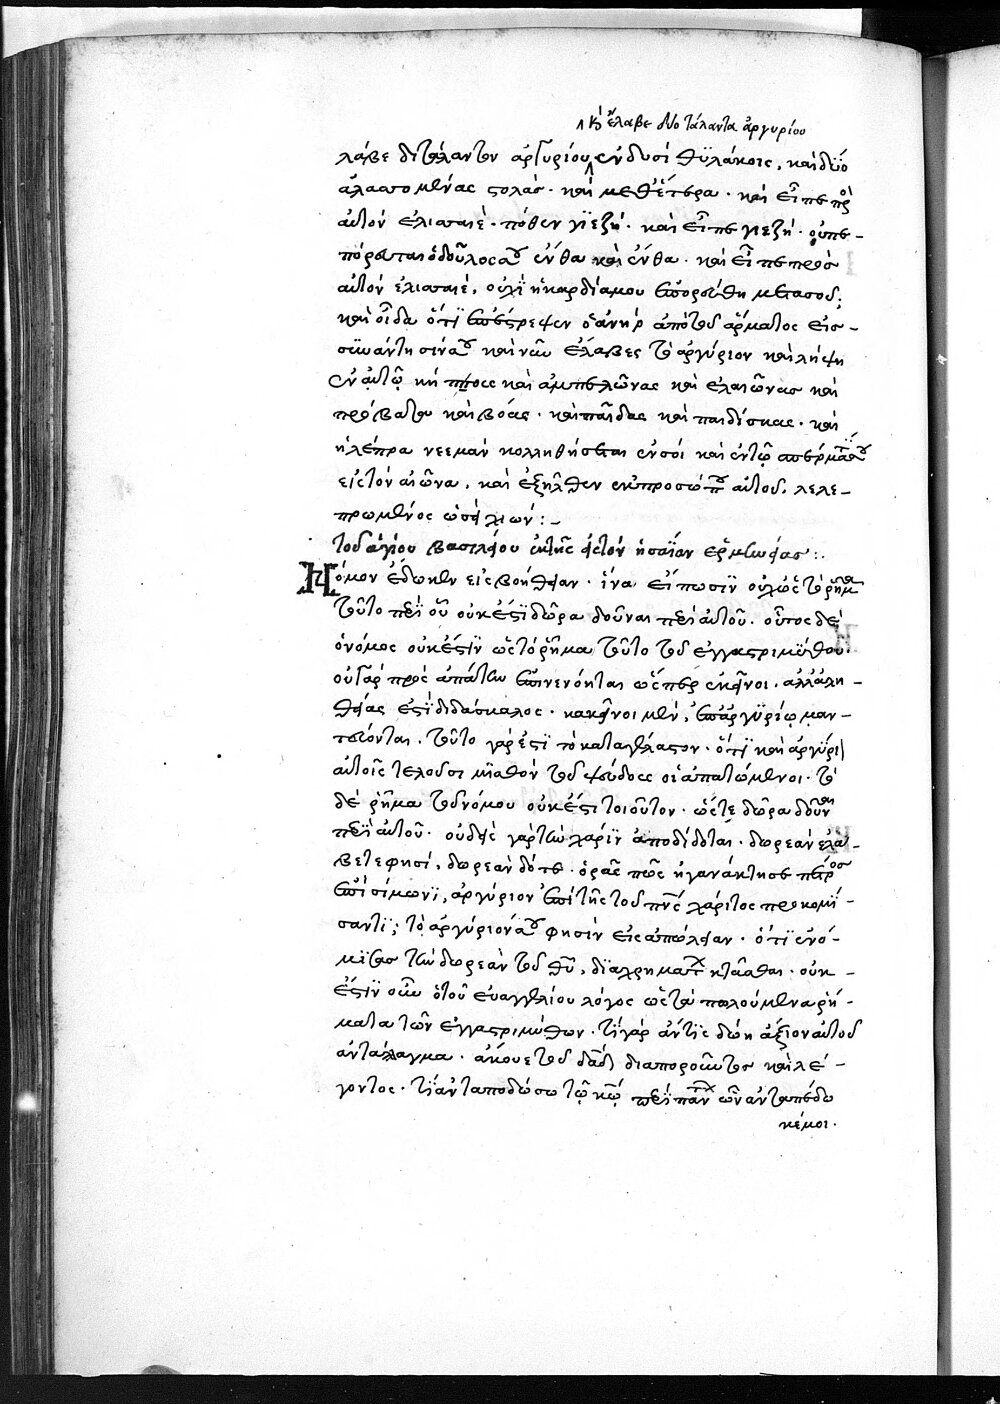 κ(αὶ) ἔλαβε δύο τάλαντα ἀργυρίου
λάβε διτάλαντον ἀργυρίου ἐν δυσὶ θϋλάκοις, καὶ δύο
ἀλασσομένας στολάς· καὶ
αὐτὸν ἐλισσαιέ· πόθεν γϊεζή· καὶ εἶπε γιεζή· οὐ πε-
πόρευται ὁ δοῦλος σοῦ ἔνθα καὶ ἔνθα· καὶ εἶπε πρὸς
αὐτὸν ἐλισσαιέ, οὐχῒ ἡ καρδία μου ἐπορεύθη μετὰ σοῦ;
καὶ οἶδα ὅτϊ ἐπέστρεψεν ὁ ἀνὴρ ἀπὸ τοῦ ἅρματος εἰς
καὶ νῦν ἔλαβες τὸ ἀργύριον καὶ λήψη
ἐν αὐτῷ κήπους καὶ ἀμπελῶνας καὶ ἐλαιῶνας καὶ
πρόβατα καὶ βόας· καὶ παῖδας καὶ παιδίσκας· καὶ
ἡ λέπρα νεεμὰν κολληθήσεται ἐν σοί καὶ ἐν τῷ σπέρματί σου
εἰς τὸν αἰῶνα, καὶ ἐξῆλθεν ἐκ προσώπου αὐτοῦ, λελε-
πρωμένος ὡσεὶ χιών:-
τοῦ ἁγίου βασιλείου ἐκ τῆς εἰς τὸν ἡσαΐαν ἑρμηνείας:.
Νόμον ἔδωκεν εἰς βοήθειαν· ἵνα εἴπωσϊν οὐχ ὡς τὸ ῥῆμα
τοῦτο περὶ οὗ οὐκ ἔστϊ δῶρα δοῦναι περὶ αὐτοῦ. οὗτος δὲ
ὁ νόμος οὐκ ἔστϊν ὡς τὸ ῥῆμα τοῦτο τοῦ ἐγγαστριμύθου.
οὐ γὰρ πρὸς ἀπάτην ἐπινενόηται ὥσπερ ἐκεῖνοι. ἀλλ' ἀλη-
θείας ἐστῒ διδάσκαλος· κἀκεῖνοι μὲν, ἐπ' ἀργϋρίῳ μαν-
τεύονται. τοῦτο γάρ ἐστϊ τὸ καταγέλαστον· ὅτϊ καὶ ἀργύρι
αὐτοῖς τελοῦσι μισθὸν τοῦ ψεύδους οἱ ἀπατώμενοι· τὸ
δὲ ῥῆμα τοῦ νόμου οὐκ ἔστι τοιοῦτον· ὥστε δῶρα δοῦναι
περὶ αὐτοῦ. οὐδεὶς γὰρ τὴν χάρϊν ἀποδίδοται. δωρεὰν ἐλά-
βετε φησί, δωρεὰν δότε· ὁρᾷς πῶς ἠγανάκτησε πέτρος
ἐπὶ σίμωνϊ, ἀργύριον ἐπὶ τῆς τοῦ πν(εύματο)ς χάριτος προκομί-
σαντϊ; τὸ ἀργύριόν σου φησὶν εἰς ἀπώλειαν· ὅτϊ ἐνό-
μϊσας τὴν δωρεὰν τοῦ θ(εο)ῦ, δϊὰ χρημάτων κτᾶσθαι· οὐκ
ἔστϊν οὖν ὁ τοῦ εὐαγγελίου λόγος ὡς τὰ πωλούμενα ῥή-
ματα τῶν ἐγγαστριμύθων· τί γὰρ ἄν τις δώῃ ἄξιον αὐτοῦ
ἀντάλαγμα· ἄκουε τοῦ δα(υὶ)δ διαποροῦντος καὶ λέ-
γοντος· τί ἀνταποδώσω τῷ κ(υρί)ῳ περὶ πάντων ὧν ἀνταπέδω
κέ μοι.